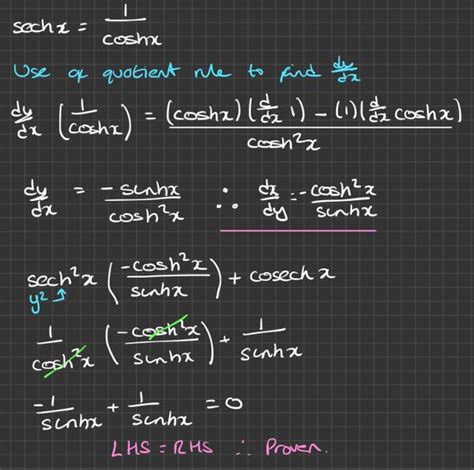 sech x = 1/coshx
Use of quotient rule to find dy/dx
dy/dx (1/coshx) = ((coshx)(d/dx 1) - (1)(d/dx coshx))/cosh²x
dy/dx = -sinhx/cosh²x ∴ dx/dy = -cosh²x/sinhx
sech²x (-cosh²x/sinhx) + cosech x
y² ↑
1/cosh²x (-cosh²x/sinhx) + 1/sinhx
-1/sinhx + 1/sinhx = 0
LHS = RHS ∴ Proven.